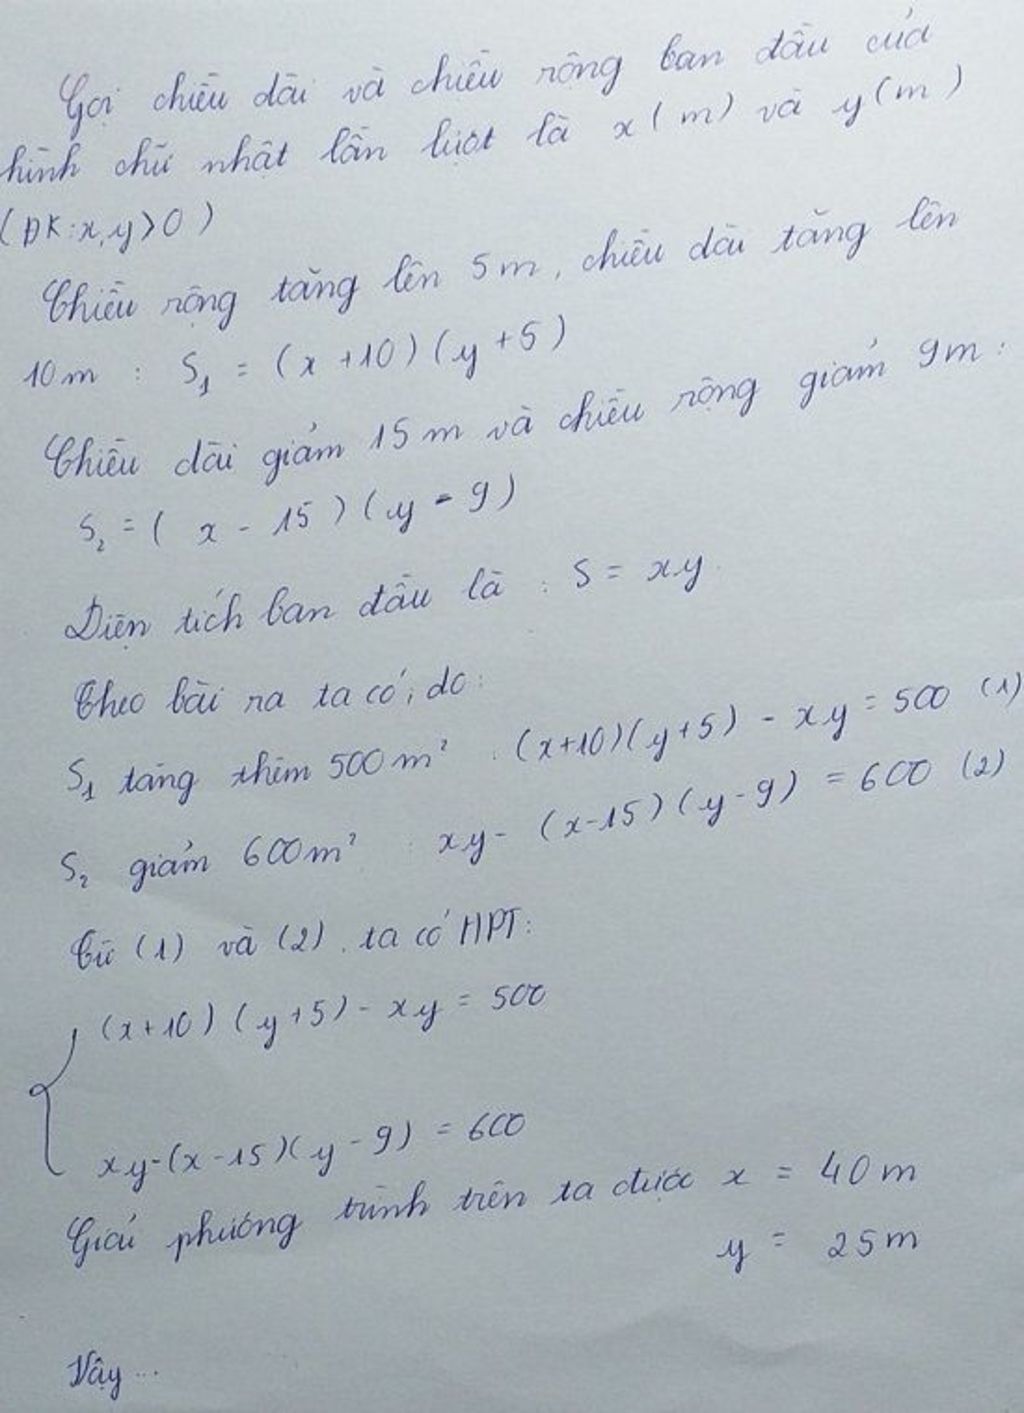 Gọi chiều dài và chiều rộng ban đầu của
hình chữ nhật lần lượt là x (m) và y (m)
(ĐK: x, y > 0)
Chiều rộng tăng lên 5m, chiều dài tăng lên
10m : S₁ = (x + 10)(y + 5)
Chiều dài giảm 15m và chiều rộng giảm 9m :
S₂ = (x - 15)(y - 9)
Diện tích ban đầu là : S = xy
Theo bài ra ta có, do:
S₁ tăng thêm 500m² : (x+10)(y+5) - xy = 500 (1)
S₂ giảm 600m² : xy - (x-15)(y-9) = 600 (2)
Từ (1) và (2), ta có HPT:
(x+10)(y+5) - xy = 500
xy-(x-15)(y-9) = 600
Giải phương trình trên ta được x = 40m
y = 25m
Vậy ...